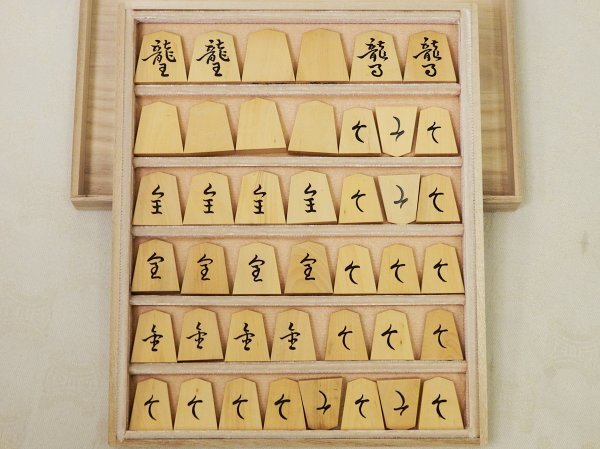 龍王 龍王 龍馬 龍馬
と と と
全 全 全 全 と と と
全 全 全 全 と と と
金 金 金 金 と と と
と と と と と と と と